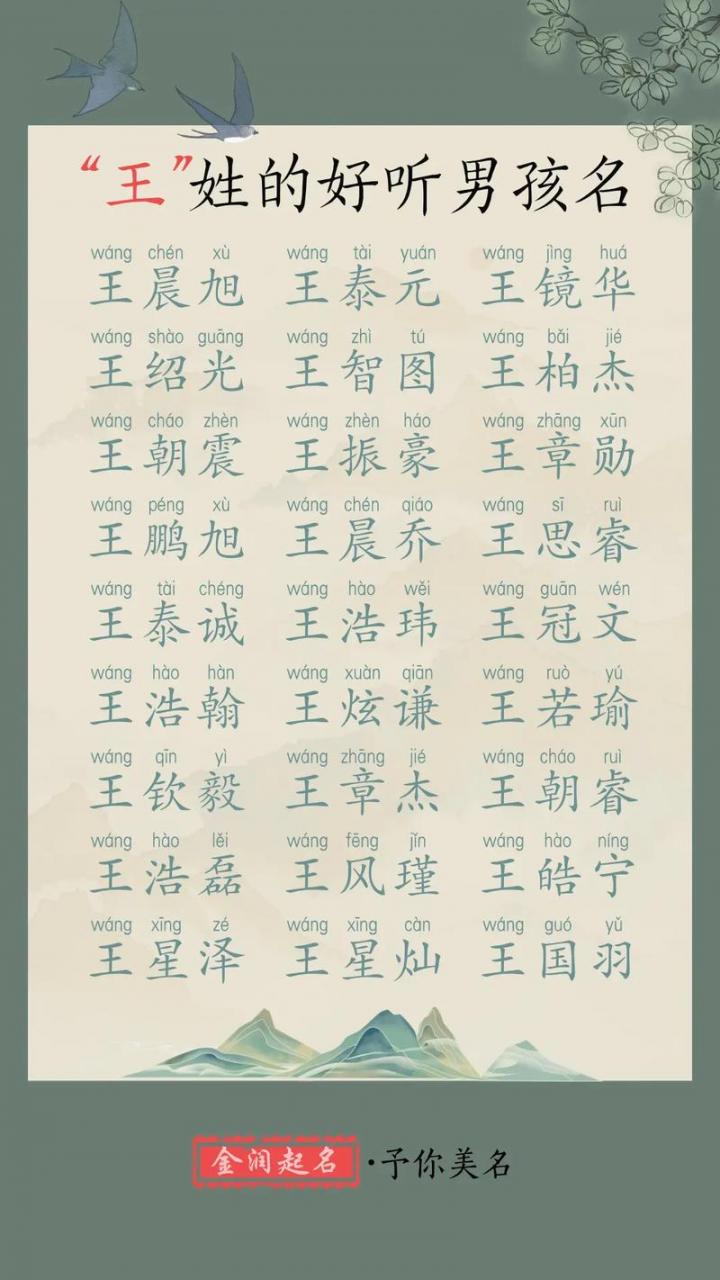 “王”姓的好听男孩名
wáng chén xù wáng tài yuán wáng jìng huá
王晨旭 王泰元 王镜华
wáng shào guāng wáng zhì tú wáng bǎi jié
王绍光 王智图 王柏杰
wáng cháo zhèn wáng zhèn háo wáng zhāng xūn
王朝震 王振豪 王章勋
wáng péng xù wáng chén qiáo wáng sī ruì
王鹏旭 王晨乔 王思睿
wáng tài chéng wáng hào wěi wáng guān wén
王泰诚 王浩玮 王冠文
wáng hào hàn wáng xuàn qiān wáng ruò yú
王浩翰 王炫谦 王若瑜
wáng qīn yì wáng zhāng jié wáng cháo ruì
王钦毅 王章杰 王朝睿
wáng hào lěi wáng fēng jǐn wáng hào níng
王浩磊 王风瑾 王皓宁
wáng xīng zé wáng xīng càn wáng guó yǔ
王星泽 王星灿 王国羽
金润起名·予你美名